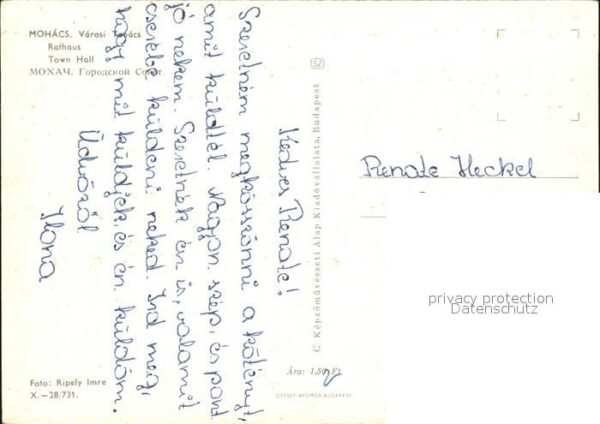 MOHÁCS. Városi Tanács
Rathaus
Town Hall
МОХАЧ. Городской Совет
Kedves Renate!
Szeretném megköszönni a kötényt,
amit küldtél. Nagyon szép, és pont
jó nekem. Szeretnék én is, valamit
cserébe küldeni neked. Írd meg,
hogy mit küldjek, és én küldöm.
Üdvözöl
Ilona
Renate Heckel
C Képzőművészeti Alap Kiadóvállalata, Budapest
privacy protection
Datenschutz
Foto: Ripely Imre
X.—28/731.
Ára: 1,50 Ft
OFFSET-NYOMDA BUDAPEST